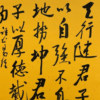 天行健君子
以自强不息
地势坤君
子以厚德载物